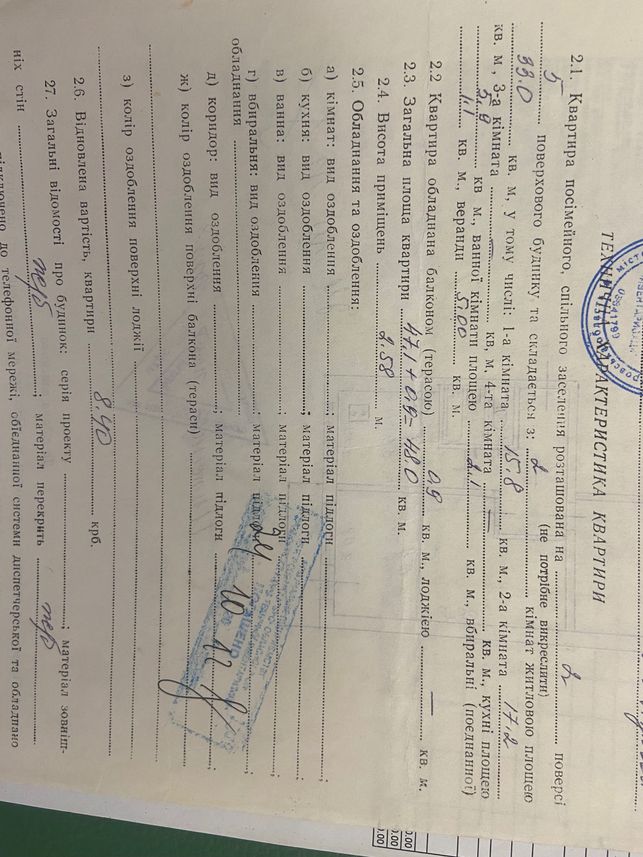 ТЕХНИЧНА ХАРАКТЕРИСТИКА КВАРТИРИ
2.1. Квартира посімейного, спільного заселення розташована на 2 поверсі
(не потрібне викреслити)
5 поверхового будинку та складається з: 2 кімнат житловою площею
33.0 кв. м, у тому числі: 1-а кімната 15.8 кв. м., 2-а кімната 17.2
кв. м , 3-а кімната — кв, м, 4-та кімната — кв. м., кухні площею
5.9 кв м., ванної кімнати площею 2.1 кв. м., вбиральні (поєднанної)
1.1 кв. м., веранди 5.00 кв. м.
2.2 Квартира обладнана балконом (терасою) 0.9 кв. м., лоджією — кв. м.
2.3. Загальна площа квартири 47.1 + 0.9 = 48.0 кв. м.
2.4. Висота приміщень 2.58 м.
2.5. Обладнання та оздоблення:
а) кімнат: вид оздоблення ; матеріал підлоги
б) кухня: вид оздоблення ; матеріал підлоги ;
в) ванна: вид оздоблення ; матеріал підлоги ;
г) вбиральня: вид оздоблення ; матеріал ;
обладнання
д) коридор: вид оздоблення ; матеріал підлоги ;
ж) колір оздоблення поверхні балкона (тераси)
24 10 12
з) колір оздоблення поверхні лоджії
2.6. Відновлена вартість, квартири 8.40 крб.
27. Загальні відомості про будинок: серія проекту ; матеріал зовніш-
ніх стін ; матеріал перекрить
до телефонної мережі, обєднанної системи диспетчерської та обладнано